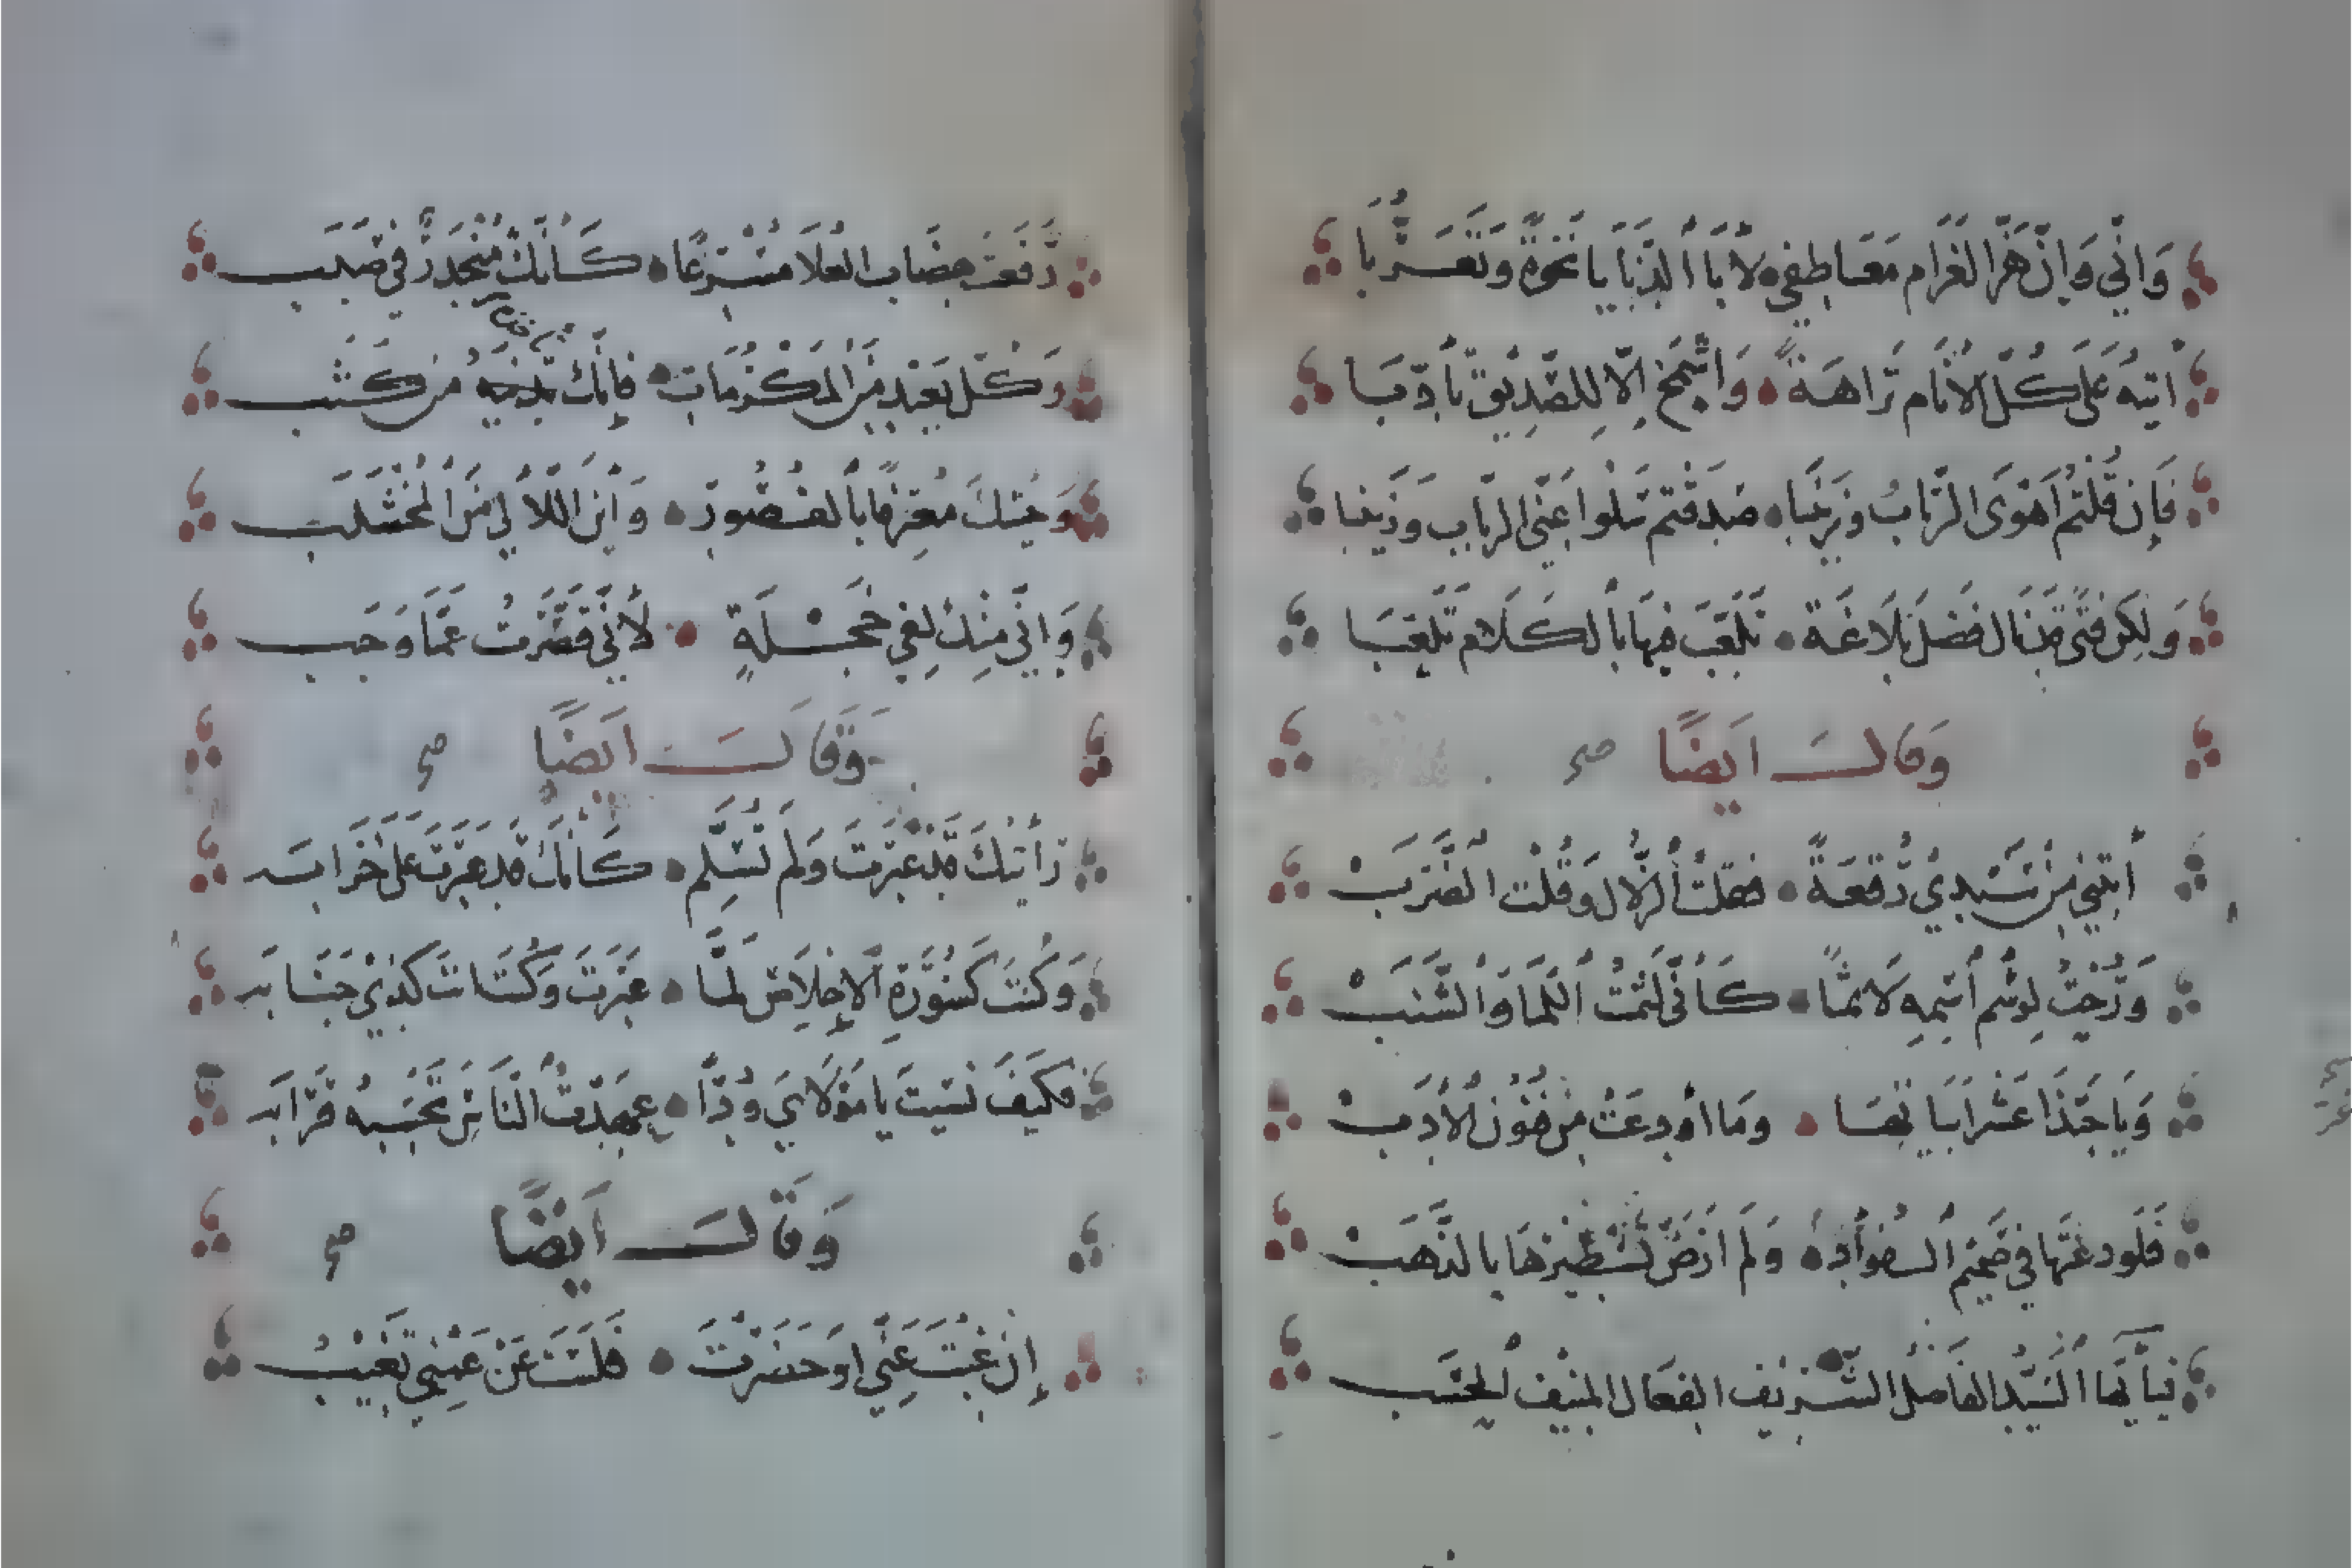 وَإنِّي وَإنْ هَزَّ الغَرَام مَعَاطِفي لآبَا الدَنَايَا نَخوَةً وَتَعَــرُّبَا
أتيْهُ عَلَى كُلِّ الأنَام نَزَاهَـةً وَأشمَخ إلّا للصَّدِيْق تَأدّبَـا
فَإن قُلتُم أهْوَى الرَّبابُ وَزَيْنَبا صَدَقْتم سَلوا عَنّي الرباب وَزَينبا
وَلكِن فتًى قد نال فَضْلَ بَلَاغَـة تَلَعَّبَ فيهَا بَالكَلَام تَلَعّبَـا
وَقالَــ ايضًا صح
أتتني مِنْ سَيّدي رُقعَـةً فقلتُ الزلال وَقُلت الضَّرَبْ
وَرُحْتُ لِرَسْم اسْمِهِ لَاثمًا كَأني لَثمْتُ اللمَا وَالشَّنَبْ
وَيَا حَبّذَا غَرَايبَاتهَــا وَمَا أودعَتْ مِن فنُون الأَدَبْ
فَلَودعْتُهَا في صَمِيْمِ الــفؤَادِ وَلَم ارضَ تَسْطِيْرهَا بالذّهَبْ
فيَأيّهَا السَيّد الفَاضِل الشَّـرِيْف الفعَال المنِيف الحسَب
رَفَعتَ هِضَاب العُلَا مُسْرِعًا كَأنَّكَ مُنْحَدرٌ في صَبَب
وَكُل بَعيْد مِنَ المَكْرُمَات فإنّكَ تدنيه من كَثَب
وَجئتكَ مُعتَرِفًا بالقُصُور وَأينَ اللآلي مِنَ المُخْشَلَب
وَإنّي مِنْك لفي خَجْـلَةٍ لأني قَصَّرْتُ عَمّا وَجَب
وَقَالَــ ايَضًا صح
رَأيْتُكَ قَد عَبَرْتَ وَلَم تُسَلِّم كَأنّكَ قد عَبَرْتَ عَلَى خَرَابَــه
وَكُنتَ كَسُوْرَةِ الإخلَاصِ لَمَّا عَبَرْتَ وَكُنتَ أنتَ كَذي جَنَابَــه
فكَيفَ نَسَيتَ يَا مَوْلَايَ وُدًّا عَهِدْتُ النَّاسَ تَحْسَبهُ قَرَابَــه
وَقَالَــ ايْضًا صح
إن غِبْتَ عَنِّي أوْ حَضَرْتَ فَلَسْتَ عَنْ عَيْني تَغِيْبُ